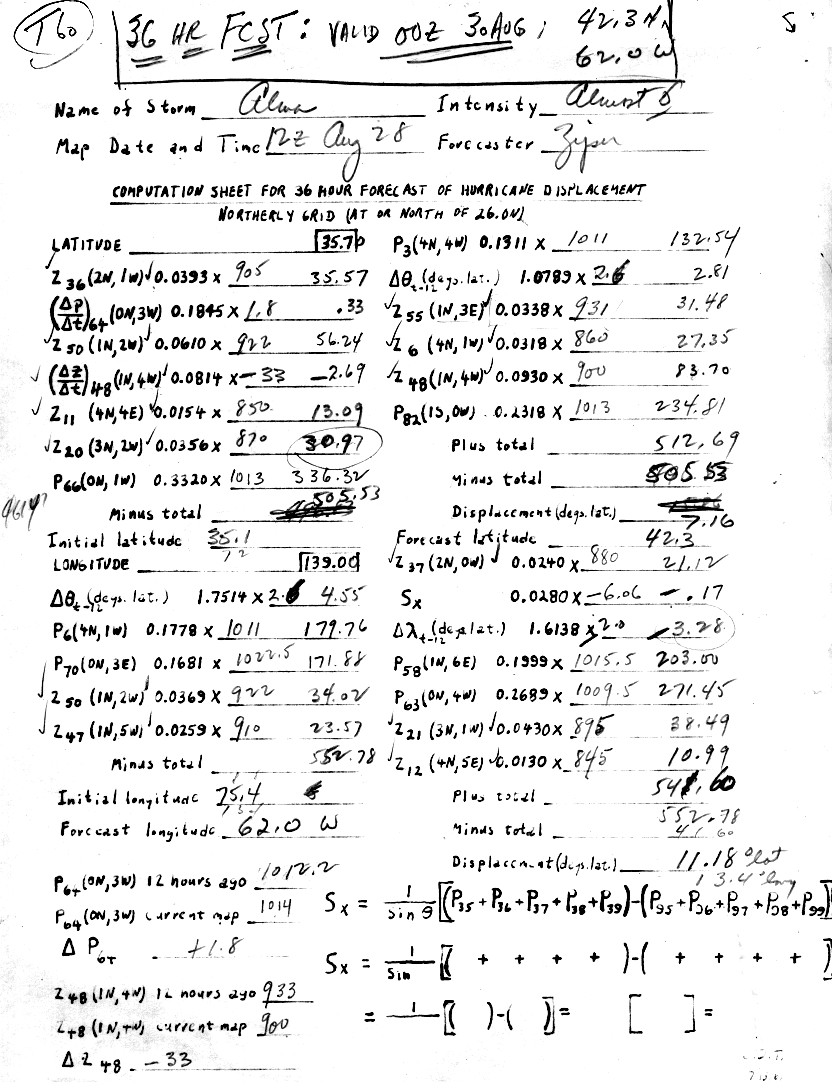 T60
36 HR FCST: VALID 00Z 30 AUG, 42.3 N, 62.0 W
5
Name of Storm Alma Intensity Almost 5
Map Date and Time 12Z Aug 28 Forecaster Zipser
COMPUTATION SHEET FOR 36 HOUR FORECAST OF HURRICANE DISPLACEMENT
NORTHERLY GRID (AT OR NORTH OF 26.0N)
LATITUDE 35.70
Z36 (2N, 1W) 0.0393 × 905 35.57
(Δp/Δt)64 (0N, 3W) 0.1845 × 1.8 .33
Z50 (1N, 2W) 0.0610 × 922 56.24
(ΔZ/Δt)48 (1N, 4W) 0.0814 × -33 -2.69
Z11 (4N, 4E) 0.0154 × 850 13.09
Z20 (3N, 2W) 0.0356 × 870 30.97
P66 (0N, 1W) 0.3320 × 1013 336.32
Minus total 505.53
Initial latitude 35.1
P3 (4N, 4W) 0.1311 × 1011 132.54
Δθt-12 (degs. lat.) 1.0789 × 2.6 2.81
Z55 (1N, 3E) 0.0338 × 931 31.48
Z6 (4N, 1W) 0.0318 × 860 27.35
Z48 (1N, 4W) 0.0930 × 900 83.70
P82 (1S, 0W) 0.2318 × 1013 234.81
Plus total 512.69
Minus total 505.53
Displacement (degs. lat.) 7.16
Forecast latitude 42.3
LONGITUDE 139.00
Δθt-12 (degs. lat.) 1.7514 × 2.6 4.55
P6 (4N, 1W) 0.1778 × 1011 179.76
P70 (0N, 3E) 0.1681 × 1022.5 171.88
Z50 (1N, 2W) 0.0369 × 922 34.02
Z47 (1N, 5W) 0.0259 × 910 23.57
Minus total 552.78
Initial longitude 75.4
Forecast longitude 62.0 W
Z37 (2N, 0W) 0.0240 × 880 21.12
Sx 0.0280 × -6.06 -.17
Δλt-12 (degs lat.) 1.6138 × 2.0 -3.28
P58 (1N, 6E) 0.1999 × 1015.5 203.00
P63 (0N, 4W) 0.2689 × 1009.5 271.45
Z21 (3N, 1W) 0.0430 × 895 38.49
Z12 (4N, 5E) 0.0130 × 845 10.99
Plus total 541.60
Minus total 552.78
41.60
Displacement (degs. lat.) 11.18 °lat
13.4 °long
P64 (0N, 3W) 12 hours ago 1012.2
P64 (0N, 3W) current map 1014
Δ P64 +1.8
Z48 (1N, 4W) 12 hours ago 933
Z48 (1N, 4W) current map 900
Δ Z48 -33
Sx = 1/Sin θ [(P35 + P36 + P37 + P38 + P39) - (P95 + P96 + P97 + P98 + P99)]
Sx = 1/Sin [( + + + + ) - ( + + + + )]
= 1/ [( ) - ( )] = [ ] =